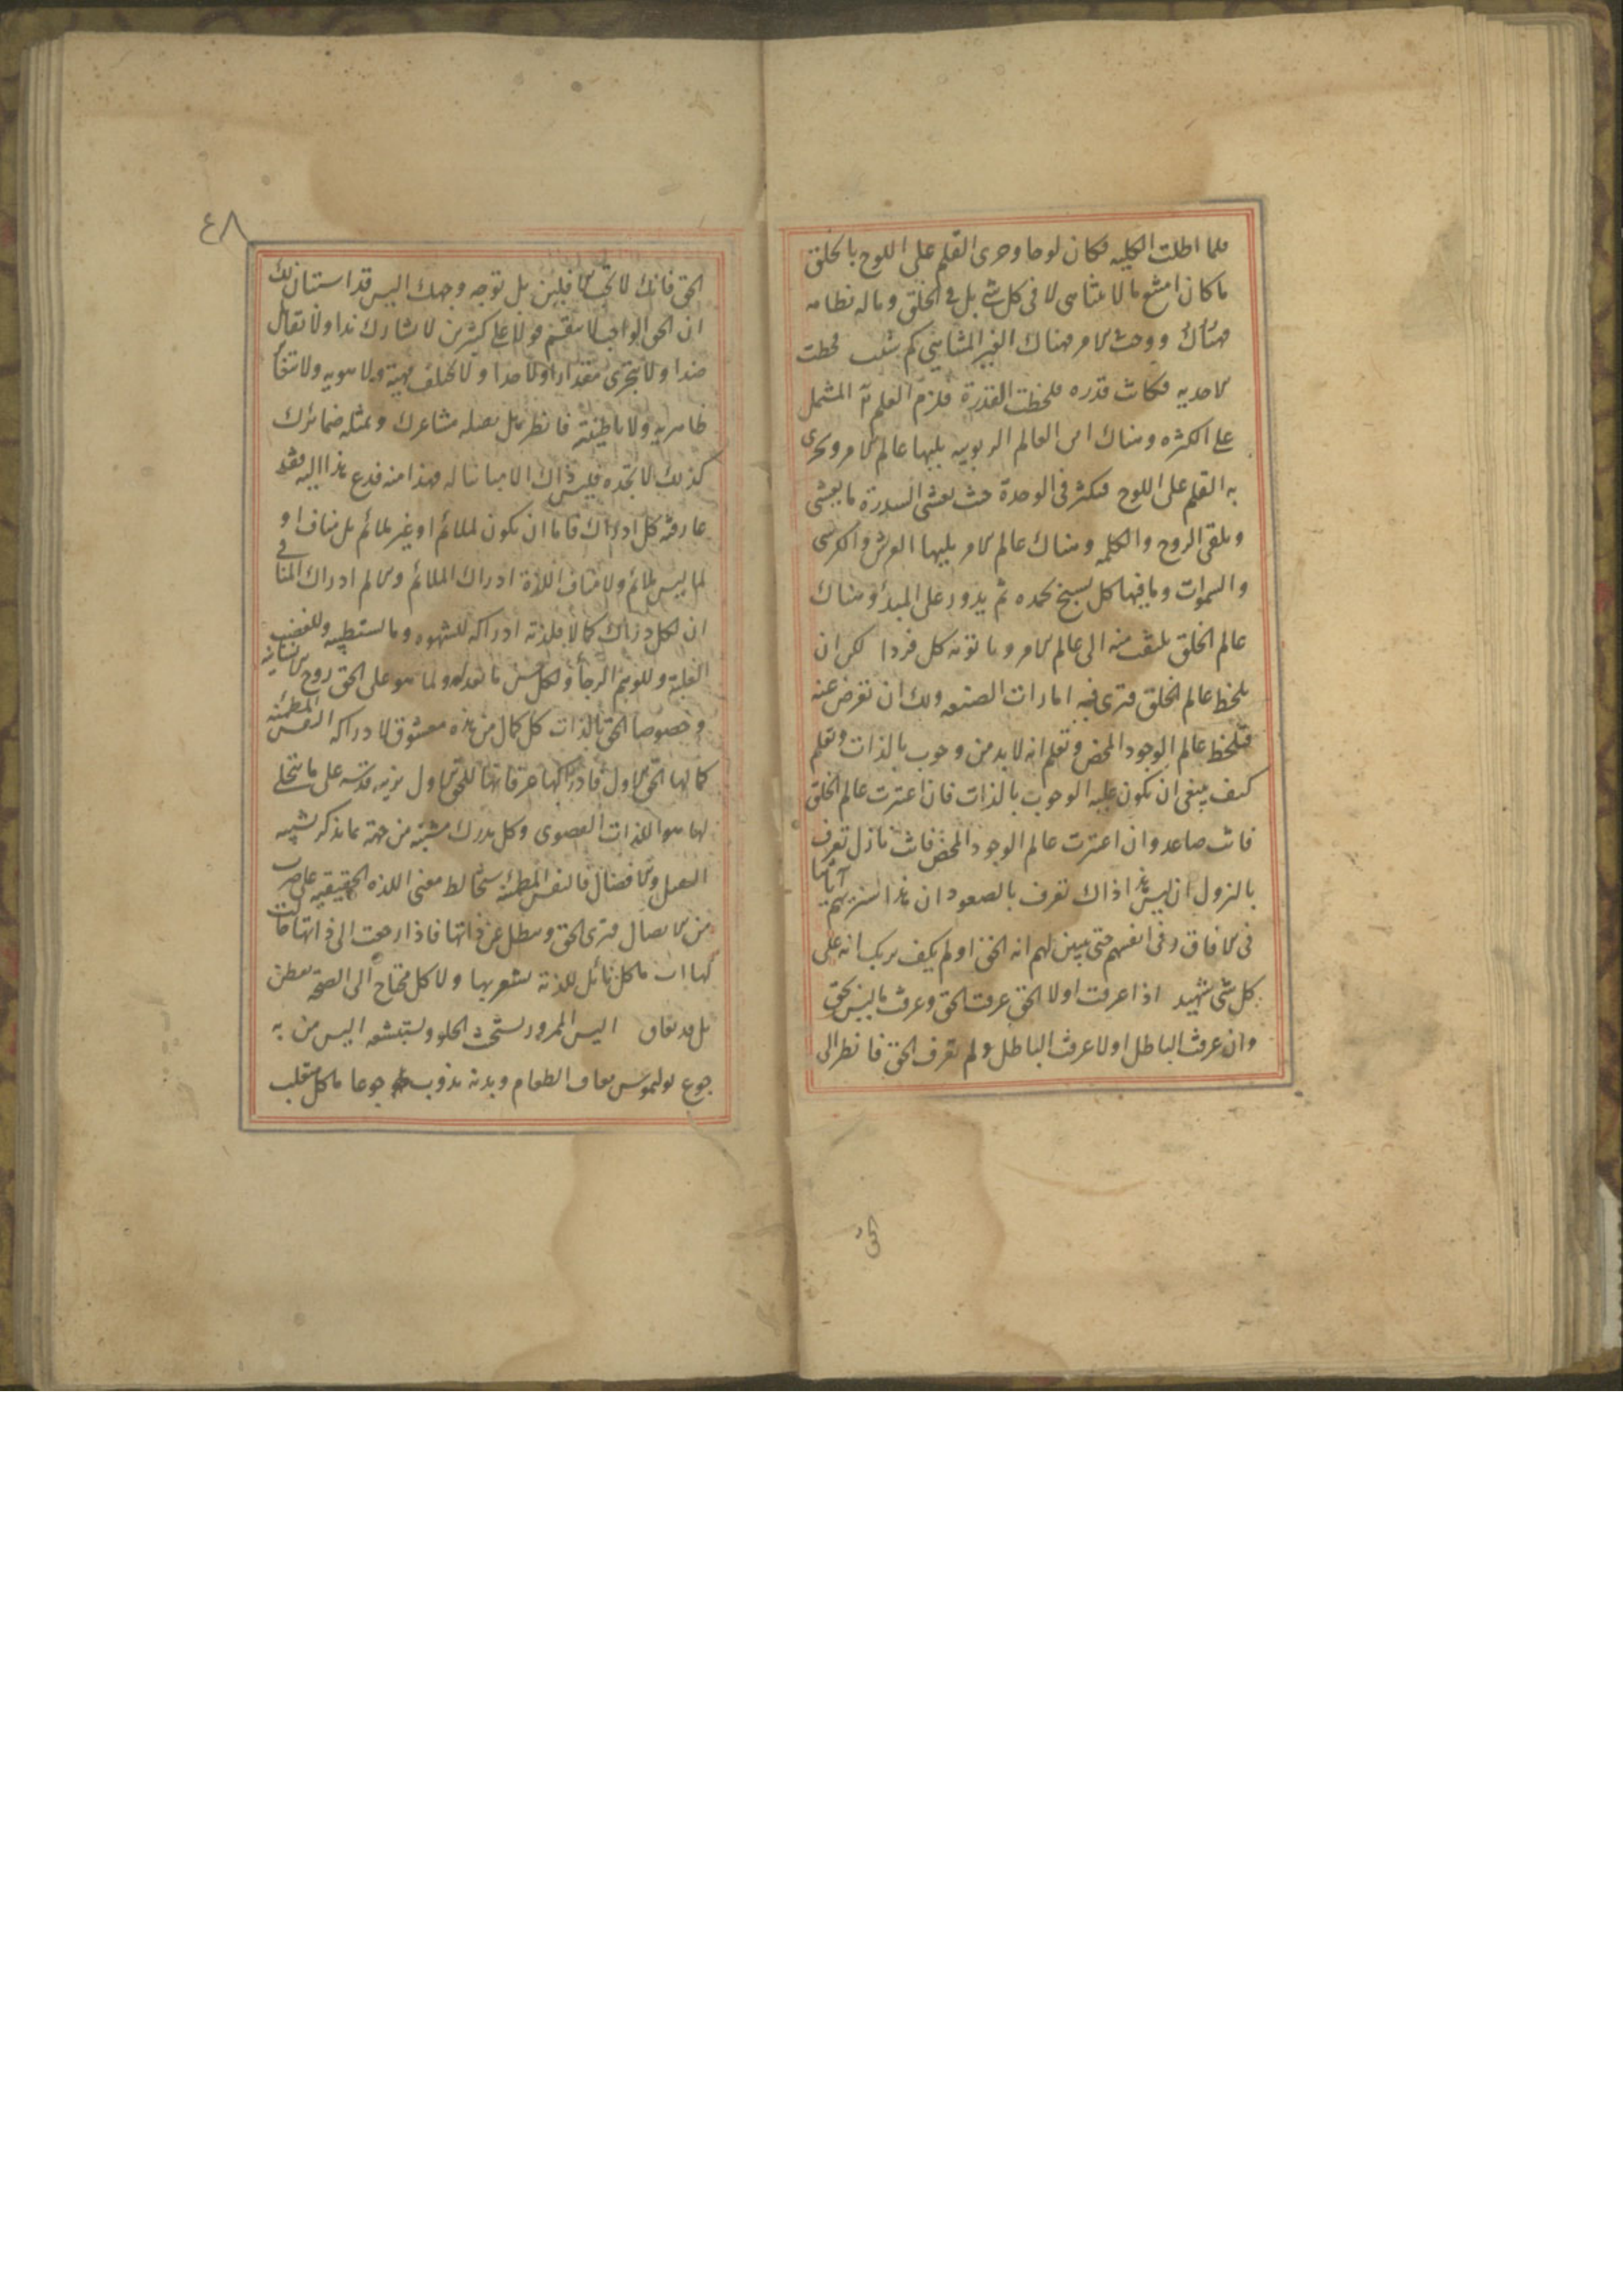 فلما اطلت الكليه فكان لوحا وجرى القلم على اللوح بالخلق
ما كان امتنع ما لا يتناهى لا فى كل شئ بل فى الخلق وماله نظامه
فهناك ووجب الامر فهناك الغير المتناهى كم شئت لحظت
الاحديه فكانت قدره فلحظت القدرة فلزم العلم المشتمل
على الكثره وهناك افق العالم الربوبيه يليها عالم الامر ويجرى
به القلم على اللوح فيتكثر فى الوحدة حيث يغشى السدرة ما يغشى
ويلقى الروح والكلمه وهناك عالم الامر يليها العرش والكرسى
والسموات وما فيها كل يسبح بحمده ثم يدور على المبدأ وهناك
عالم الخلق يلتفت منه الى عالم الامر وياتونه كل فردا لك ان
تلحظ عالم الخلق فترى فيه امارات الصنعه ولك ان تعرض عنه
فتلحظ عالم الوجود المحض وتعلم انه لا بد من وجوب بالذات وتعلم
كيف ينبغى ان يكون عليه الوجوب بالذات فان اعتبرت عالم الخلق
فانت صاعد وان اعتبرت عالم الوجود المحض فانت نازل تعرف
بالنزول ان ليس هذا ذاك تعرف بالصعود ان هذا سنريهم آياتنا
فى الافاق وفى انفسهم حتى يتبين لهم انه الحق اولم يكف بربك انه على
كل شئ شهيد اذا عرفت اولا الحق عرفت الحق وعرفت ما ليس بحق
وان عرفت الباطل اولا عرفت الباطل ولم تعرف الحق فانظر الى
الحق
٤٨
الحق فانك لا تحب الافلين بل توجه وجهك اليس قد استبان لك
ان الحق الواجب لا ينقسم قولا على كثيرين لا يشارك ندا ولا يقابل
ضدا ولا يتجزى مقدارا ولا حدا ولا يختلف مهية ولا هويه ولا يتغاير
ظاهريه ولا باطنيته فانظر هل يقبله مشاعرك وتمثله ضمائرك
كذلك لا تجده فليس ذاك الا مباينا له فهذا منه فدع هذا اليه فقد
عارفته كل ادراك فاما ان يكون لملائم او غير ملائم بل مناف او
لما ليس بملائم ولا مناف اللذة ادراك الملائم والالم ادراك المنافى
ان لكل دراك كمالا فلذته ادراكه للشهوه وما يستطيبه وللغضب
الغلبة وللوهم الرجأ ولكل حس ما يعد له ولما هو على الحق روح الانسانيه
وخصوصا الحق بالذات كل كمال من هذه معشوق لادراكه النفس المطمئنه
كمالها الحق الاول فادراكها عرفانها للحق الاول بريه قدسه على ما يتجلى
لها هو اللذات القصوى وكل مدرك متشبه من جهة بما يدركه تشبه
التقبل والافضال فالنفس المطمئنه ستخالط معنى اللذه الحقيقيه على ضرب
من الاتصال فترى الحق وتبطل عن ذاتها فاذا رجعت الى ذاتها قالت
لها اب ما كل نائل للذته يشعر بها ولا كل محتاج الى الصحة يفطن
بل قد يعاف اليس الممرور يستخبث الحلو ويستبشعه اليس من به
جوع بوليموس يعاف الطعام وبدنه يذوب جوعا ما كل متقلب